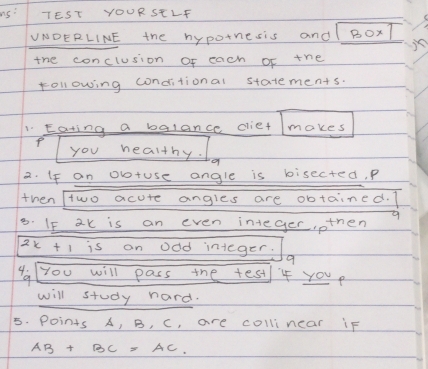 ns:
TEST YOURSELF
UNDERLINE the hypothesis and BOX
the conclusion of each of the
following conditional statements.
1. Eating a balance diet makes
p you healthy. q
2. If an obtuse angle is bisected, p
then two acute angles are obtained. q
3. If 2k is an even integer, p then
2k + 1 is an odd integer. q
4. q You will pass the test if you p
will study hard.
5. Points A, B, C, are collinear if
AB + BC = AC.